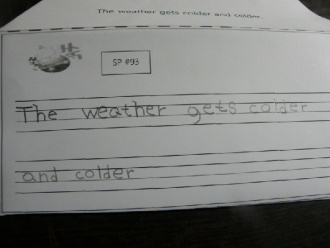 The weather gets colder and colder.
SP #93
The weather gets colder
and colder